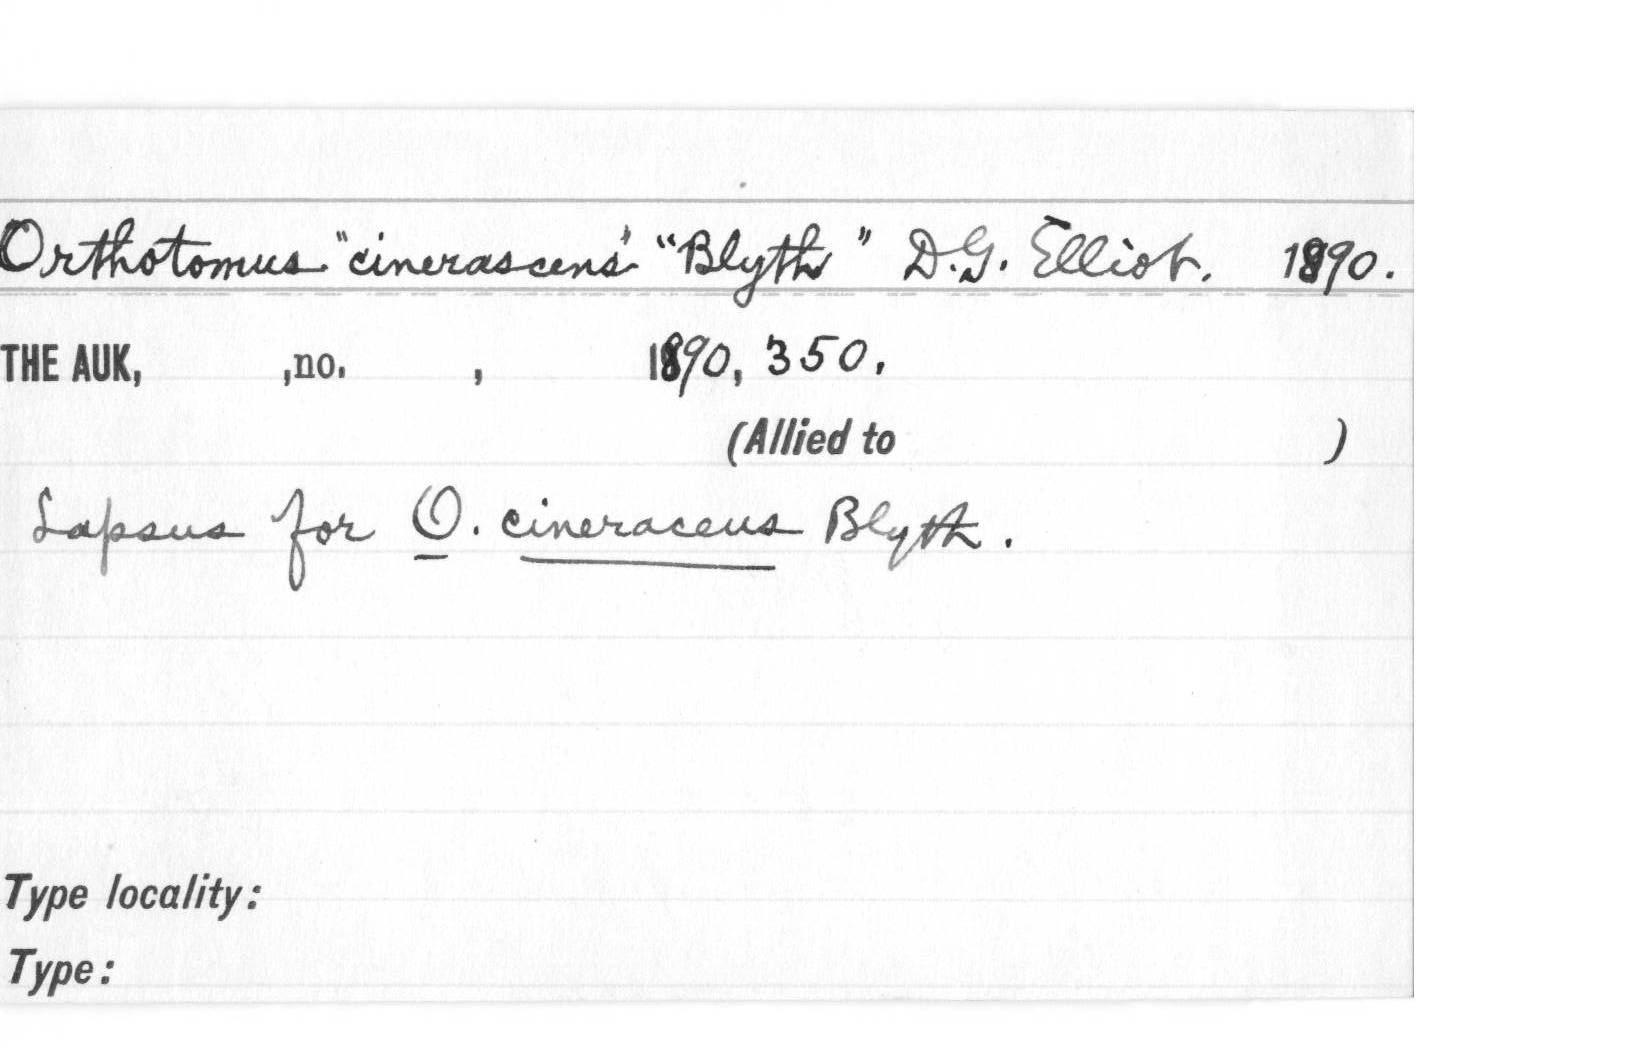 Orthotomus "cinerascens" "Blyth" D.G. Elliot. 1890.
THE AUK, ,no. , 1890, 350.
(Allied to )
Lapsus for O. cineraceus Blyth.
Type locality:
Type: